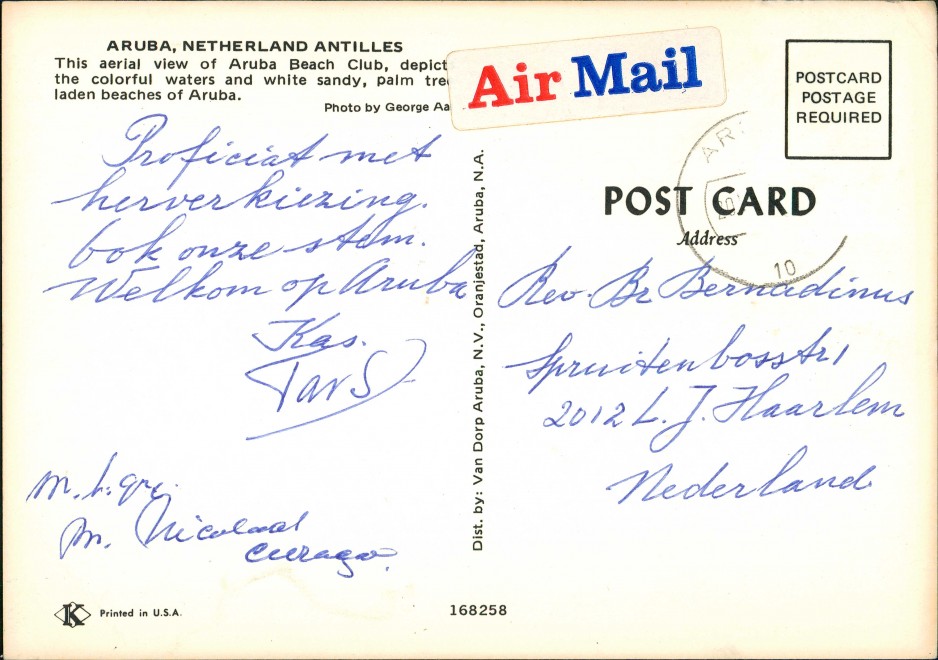 ARUBA, NETHERLAND ANTILLES
This aerial view of Aruba Beach Club, depict
the colorful waters and white sandy, palm tre
laden beaches of Aruba.
Photo by George Aa
Air Mail
POSTCARD
POSTAGE
REQUIRED
AR
10
POST CARD
Address
Proficiat met
herverkiezing.
Ook onze stem.
Welkom op Aruba
Kas.
m. h. gr.
m. Nicolaas
Curaçao.
Dist. by: Van Dorp Aruba, N.V., Oranjestad, Aruba, N.A.
Rev. Br Bernadinus
Spruitenbosstr 1
2012 L.J. Haarlem
Nederland
K
Printed in U.S.A.
168258